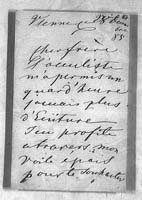 Vienne ce 28 Dem
bre
85
Cher frère
L'oculiste
m'a permis un
quart d'heure
jamais plus
d'Ecriture
J'en profite
a travers mon
voile epais
pour te souhaiter